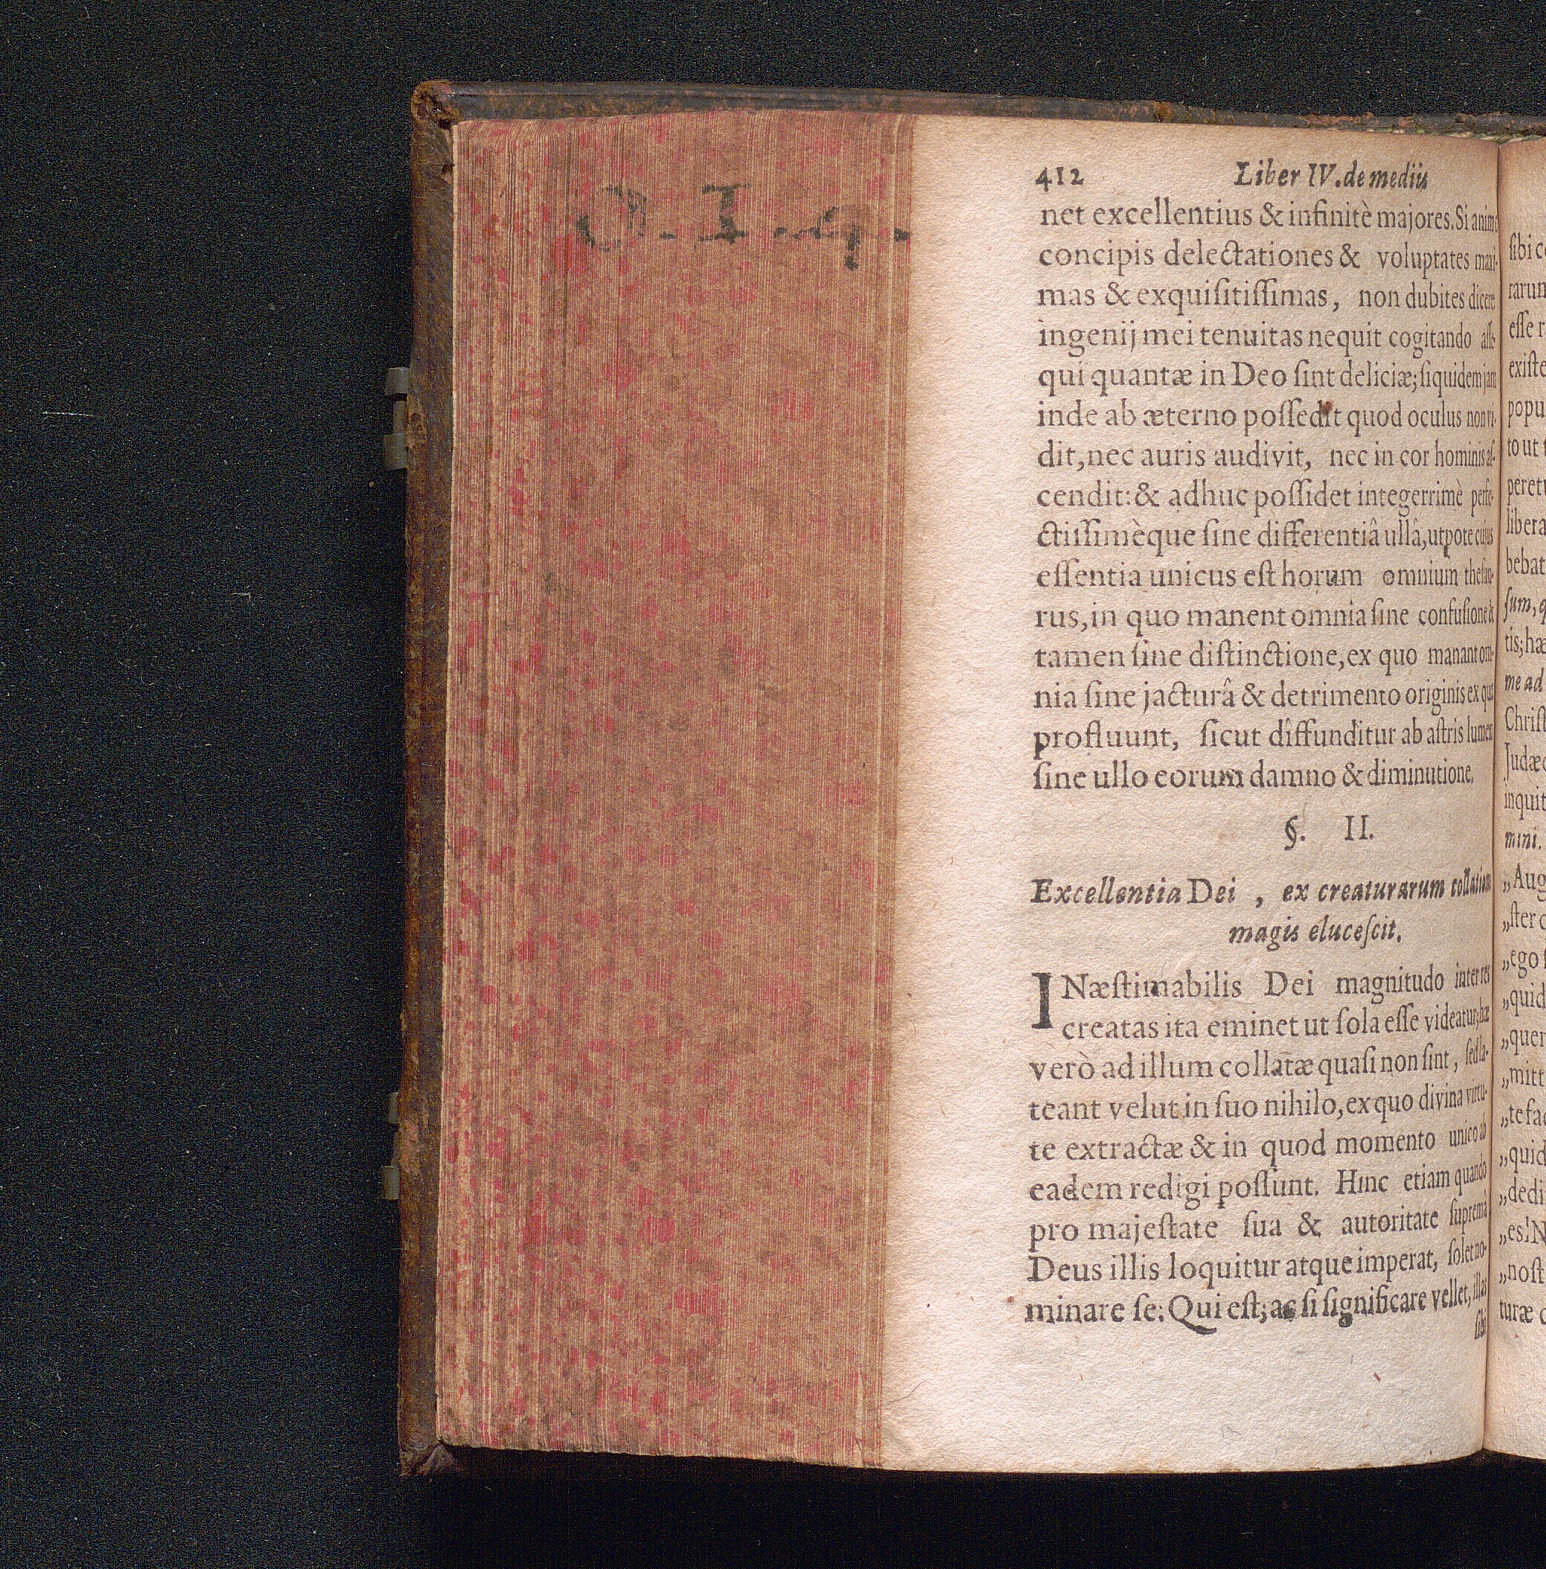 412 Liber IV. de mediis
net excellentius & infinitè majores. Si animo
concipis delectationes & voluptates maxi-
mas & exquiſitiſſimas, non dubites dicere
ingenij mei tenuitas nequit cogitando aſſe-
qui quantæ in Deo ſint deliciæ; ſiquidem jam
inde ab æterno poſſedit quod oculus non vi-
dit, nec auris audivit, nec in cor hominis aſ-
cendit: & adhuc poſſidet integerrimè perfe-
ctiſſimèque ſine differentiâ ullâ, utpote cujus
eſſentia unicus eſt horum omnium theſau-
rus, in quo manent omnia ſine confuſione &
tamen ſine diſtinctione, ex quo manant om-
nia ſine jacturâ & detrimento originis ex qua
profluunt, ſicut diffunditur ab aſtris lumen
ſine ullo eorum damno & diminutione.
§. II.
Excellentia Dei , ex creaturarum collatione
magis eluceſcit.
INæſtimabilis Dei magnitudo inter res
creatas ita eminet ut ſola eſſe videatur; hæ
verò ad illum collatæ quaſi non ſint, ſed la-
teant velut in ſuo nihilo, ex quo divina virtu-
te extractæ & in quod momento unico ab
eadem redigi poſſunt. Hinc etiam quando
pro majeſtate ſua & autoritate ſuprema
Deus illis loquitur atque imperat, ſolet no-
minare ſe: Qui eſt; ac ſi ſignificare vellet, illas
ſibi
ſibi
rarum
eſſe
popu
to ut
liberа
bebat
ſum,
tis; hæ
me ad
Chriſt
inquit
mini.
„Aug
„ſter
„ego
„quid
„mitt
„te fac
„quid
„dedi
„es! N
„noſt
turæ